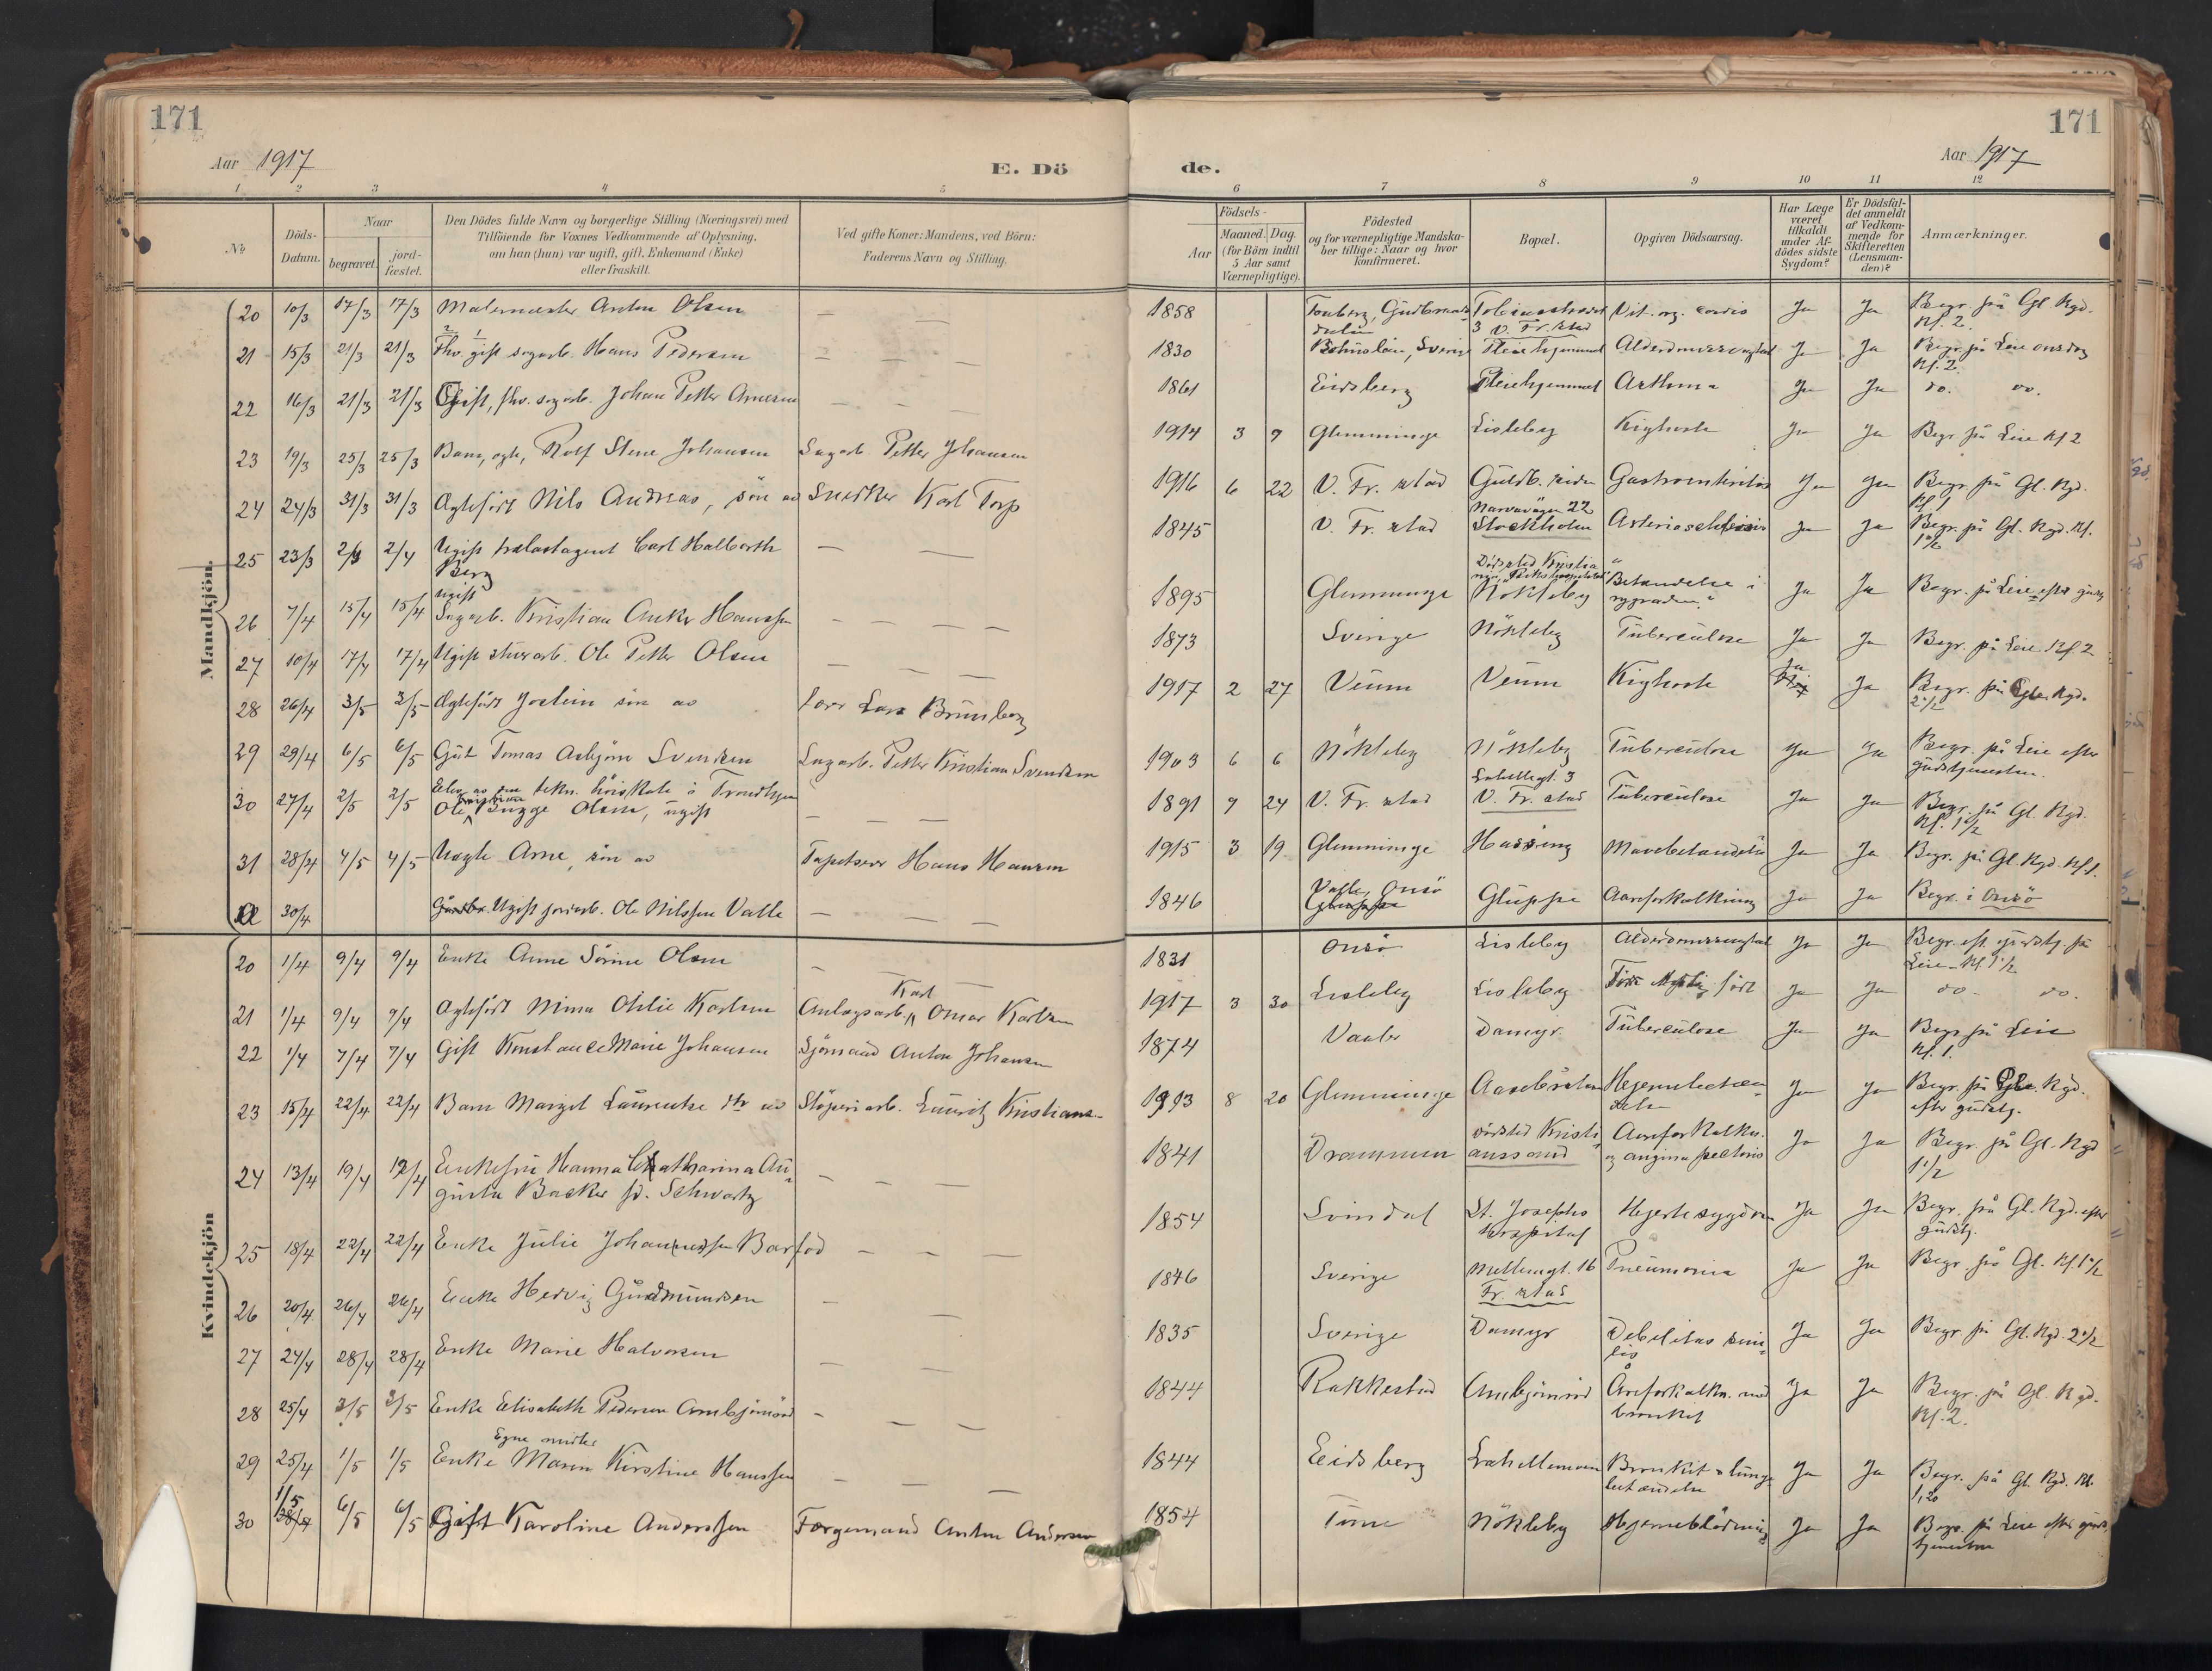 171
171
Aar 1917
E. Dö
de.
Aar 1917
1 2 3 4 5 6 7 8 9 10 11 12
No
Döds-
Datum.
Naar
begravet.
jord-
fæstet.
Den Dödes fulde Navn og borgerlige Stilling (Næringsvei) med
Tilföiende for Voxnes Vedkommende af Oplysning,
om han (hun) var ugift, gift, Enkemand (Enke)
eller fraskilt.
Ved gifte Koner: Mandens, ved Börn:
Faderens Navn og Stilling.
Födsels-
Aar
Maaned. Dag.
(for Börn indtil
5 Aar samt
Værnepligtige).
Födested
og for værnepligtige Mandska-
ber tillige: Naar og hvor
konfirmeret.
Bopæl.
Opgiven Dödsaarsag.
Har Læge
været
tilkaldt
under Af-
dödes sidste
Sygdom?
Er Dödsfal-
det anmeldt
af Vedkom-
mende for
Skifteretten
(Lensman-
den)?
Anmærkninger.
Mandkjön.
20 10/3 17/3 17/3 Malermester Anton Olsen — — 1858 Gudbrands-
dalen 3 V. Fr.stad Vit. org. cordis Ja Ja Begr. på Gl. Kgd.
Kl. 2.
21 15/3 21/3 21/3 Fhv. gift sagarb. Hans Pedersen — — — 1830 Bohuslän, Sverige Pleiehjemmet Alderdomssvaghed Ja Ja Begr. på Leie onsdag
Kl. 2.
22 16/3 21/3 21/3 Gift, fhv. sagarb. Johan Petter Arnesen — — — 1861 Eidsberg Pleiehjemmet Asthma Ja Ja do. do.
23 19/3 25/3 25/3 Barn, egte, Rolf Stene Johansen Sagarb. Petter Johansen 1914 3 9 Glemminge Lisleby Kighoste Ja Ja Begr. på Leie Kl 2
24 24/3 31/3 31/3 Ægtefödt Nils Andreas, sön av Snedker Karl Torp 1916 6 22 V. Fr.stad Guldb. siden Gastroenteritis Ja Ja Begr. på Gl. Kgd.
Kl 1
25 23/3 2/4 2/4 Ugift Carl Halborth
Berg — — 1845 V. Fr.stad Narvavägen 22
Stockholm Ja Ja Begr. på Gl. Kgd. Kl.
1 1/2
26 7/4 15/4 15/4 ugift
Sagarb. Kristian Anker Hanssen — — — — 1895 Glemminge Dödssted Kristia-
nia, Rikshospitalet
Nökleby "Betændelse i
rygraden" Ja Ja Begr. på Leie efter gudstj.
27 10/4 17/4 17/4 Ugift Ole Petter Olsen — — — 1873 Sverige Nökleby Tuberculose Ja Ja Begr. på Leie Kl. 2
28 26/4 3/5 3/5 Ægtefödt Jostein sön av Lars Brunsberg 1917 2 27 Veum Veum Kighoste Ja Ja Begr. på Gl. Kgd.
2 1/2
29 29/4 6/5 6/5 Gut Tomas Asbjörn Svendsen Sagarb. Petter Kristian Svendsen 1903 6 6 Nökleby Nökleby Tuberculose Ja Ja Begr. på Leie efter
gudstjenesten.
30 27/4 2/5 2/5 Elev av den tekn. höiskole i Trondhjem
Ole Bugge Olsen, ugift — — — 1891 9 24 V. Fr.stad 3
V. Fr.stad Tuberculose Ja Ja Begr. på Gl. Kgd.
Kl. 1 1/2
31 28/4 4/5 4/5 Uægte Arne, sön av Tapetserer Hans Hansen 1915 3 19 Glemminge Hassing Mavebetændelse Ja Ja Begr. på Gl. Kgd. Kl 1.
a 30/4 Ugift jordarb. Ole Nilssen Valle — — 1846 Valle, Onsö Gluppe Aareforkalkning Ja Ja Begr. i Onsö
Kvindekjön
20 1/4 9/4 9/4 Enke Anne Sörine Olsen — — 1831 Onsö Lisleby Alderdomssvaghed Ja Ja Begr. eft. gudstj. på
Leie — Kl. 1 1/2
21 1/4 9/4 9/4 Ægtefödt Minna Otilie Karlsen Anlægsarb. Karl Omar Karlsen 1917 3 30 Lisleby Lisleby född Ja Ja do. do.
22 1/4 7/4 7/4 Gift Konstance Marie Johansen Sjömand Anton Johansen 1874 Vaaler Damyr Tuberculose Ja Ja Begr. på Leie
Kl. 1.
23 15/4 22/4 22/4 Barn Margit Laurentze dtr av Stöperiarb. Lauritz Kristians- 1913 8 20 Glemminge Hjernebetæn-
delse Ja Ja Begr. på Gl. Kgd.
efter gudstj.
24 13/4 19/4 19/4 Enkefru Hanna Catharina Au-
gusta Backer fd. Schwartz — — — 1841 Drammen dödsted Kristi-
anssand Aareforkalkn.
og angina pectoris Ja Ja Begr. på Gl. Kgd
1 1/2
25 18/4 22/4 22/4 Enke Julie Johannessen Barfod — — — 1854 Svindal St. Josephs
Hospital Hjertesygdom Ja Ja Begr. på Gl. Kgd. efter
gudstj.
26 20/4 26/4 26/4 Enke Hedvig Gudmundsen — — 1846 Sverige Mellemgt. 16
Fr.stad Pneumonia Ja Ja Begr. på Gl. Kl 1 1/2
27 24/4 28/4 28/4 Enke Marie Halvorsen — — 1835 Sverige Damyr Debilitas seni-
lis Ja Ja Begr på Gl. Kgd. 2 1/2
28 25/4 3/5 3/5 Enke Elisabeth Pedersen Ambjörnröd — — — 1844 Rakkestad Ambjörnröd Åreforkalkn. med
bronkit Ja Ja Begr. på Gl. Kgd.
Kl. 2.
29 25/4 1/5 1/5 Egne midler
Enke Maren Kirstine Hanssen — — — 1844 Eidsberg Bronkit o lunge-
betændelse Ja Ja Begr. på Gl. Kgd. Kl.
1,20
30 1/5 6/5 6/5 Gift Karoline Anderssen Færgemand Anton Andersen 1854 Tune Nökleby Hjerneblödning Ja Ja Begr. på Leie efter guds-
tjenesten